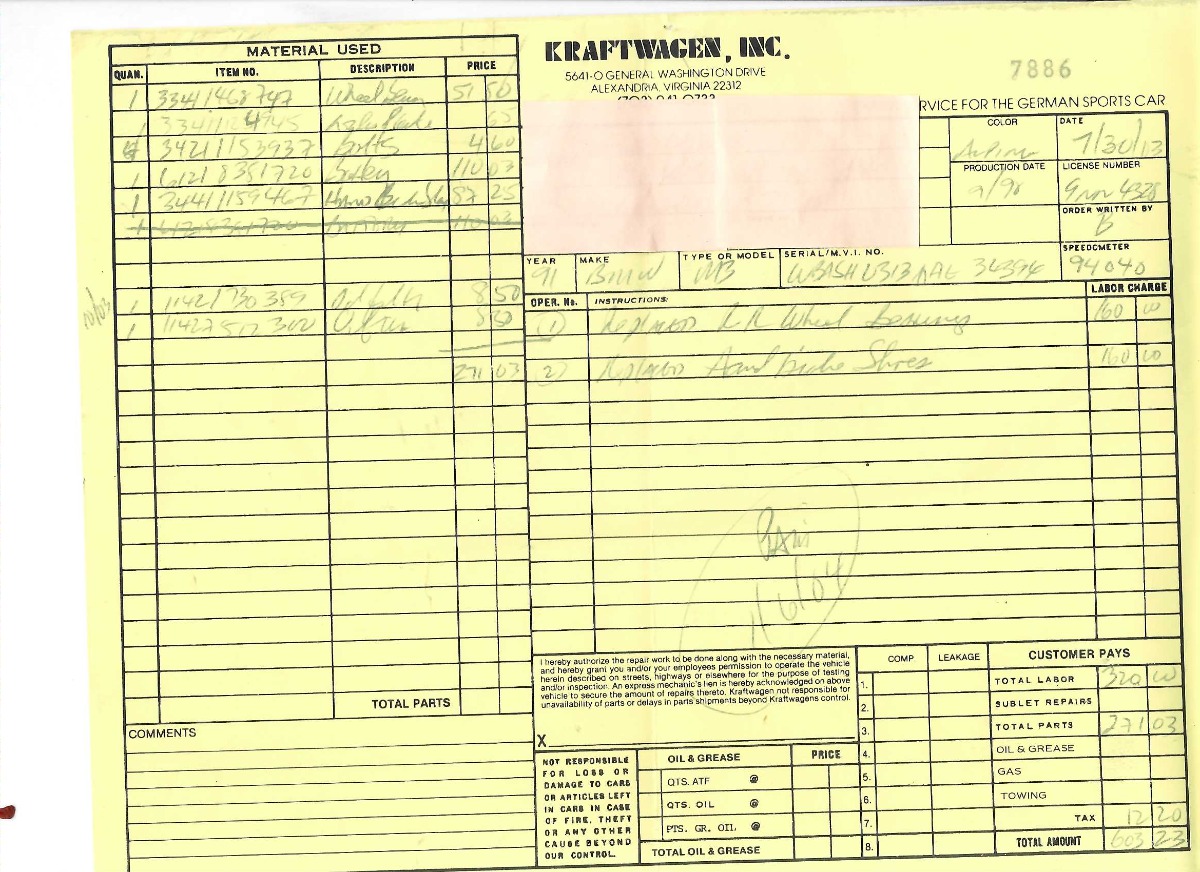 MATERIAL USED
QUAN. ITEM NO. DESCRIPTION PRICE
1 33411468747 Wheel 51 50
1 65
4 34211153937 Bolts 4 60
1 61218351720 110 03
1 34411159467 87 25
1 110 03
1 8 50
1 8 50
271 03
TOTAL PARTS
COMMENTS
KRAFTWAGEN, INC.
5641-O GENERAL WASHINGTON DRIVE
ALEXANDRIA, VIRGINIA 22312
7886
RVICE FOR THE GERMAN SPORTS CAR
COLOR DATE
7/30/13
PRODUCTION DATE LICENSE NUMBER
9/90
ORDER WRITTEN BY
B
YEAR MAKE TYPE OR MODEL SERIAL/M.V.I. NO. SPEEDOMETER
91 BMW 94040
OPER. No. INSTRUCTIONS: LABOR CHARGE
(1) Replaced R.R. Wheel Bearings 160 00
(2) Replaced Hand Brake Shoes 160 00
Paid
1/6/04
I hereby authorize the repair work to be done along with the necessary material,
and hereby grant you and/or your employees permission to operate the vehicle
herein described on streets, highways or elsewhere for the purpose of testing
and/or inspection. An express mechanic's lien is hereby acknowledged on above
vehicle to secure the amount of repairs thereto. Kraftwagen not responsible for
unavailability of parts or delays in parts shipments beyond Kraftwagens control.
X
NOT RESPONSIBLE
FOR LOSS OR
DAMAGE TO CARS
OR ARTICLES LEFT
IN CARS IN CASE
OF FIRE, THEFT
OR ANY OTHER
CAUSE BEYOND
OUR CONTROL.
OIL & GREASE PRICE
QTS. ATF @
QTS. OIL @
PTS. GR. OIL @
TOTAL OIL & GREASE
COMP LEAKAGE
1.
2.
3.
4.
5.
6.
7.
8.
CUSTOMER PAYS
TOTAL LABOR 320 00
SUBLET REPAIRS
TOTAL PARTS 271 03
OIL & GREASE
GAS
TOWING
TAX 12 20
TOTAL AMOUNT 603 23